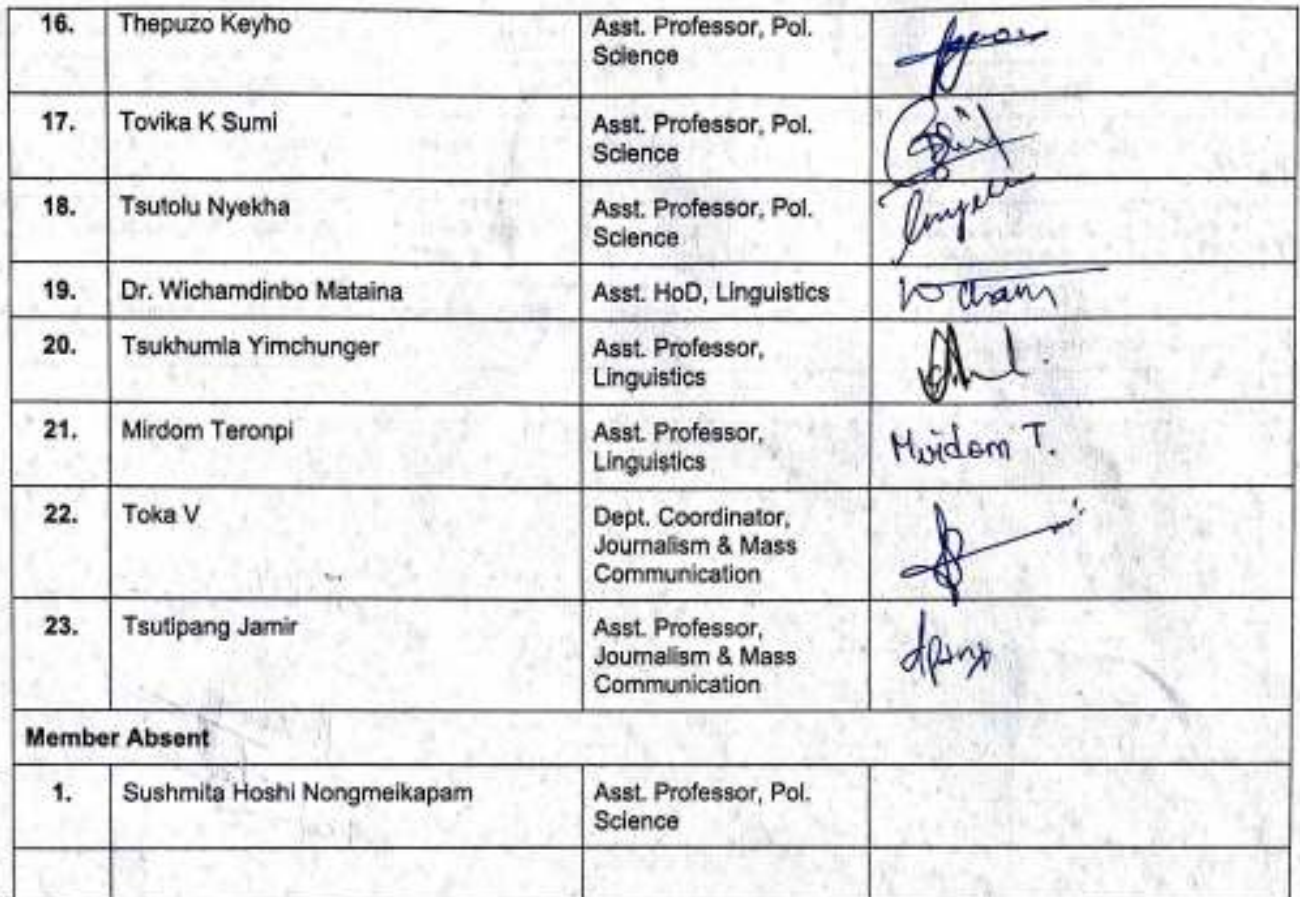 16. Thepuzo Keyho Asst. Professor, Pol.
Science
17. Tovika K Sumi Asst. Professor, Pol.
Science
18. Tsutolu Nyekha Asst. Professor, Pol.
Science
19. Dr. Wichamdinbo Mataina Asst. HoD, Linguistics
20. Tsukhumla Yimchunger Asst. Professor,
Linguistics
21. Mirdom Teronpi Asst. Professor, Mirdom T.
Linguistics
22. Toka V Dept. Coordinator,
Journalism & Mass
Communication
23. Tsutipang Jamir Asst. Professor,
Journalism & Mass
Communication
Member Absent
1. Sushmita Hoshi Nongmeikapam Asst. Professor, Pol.
Science